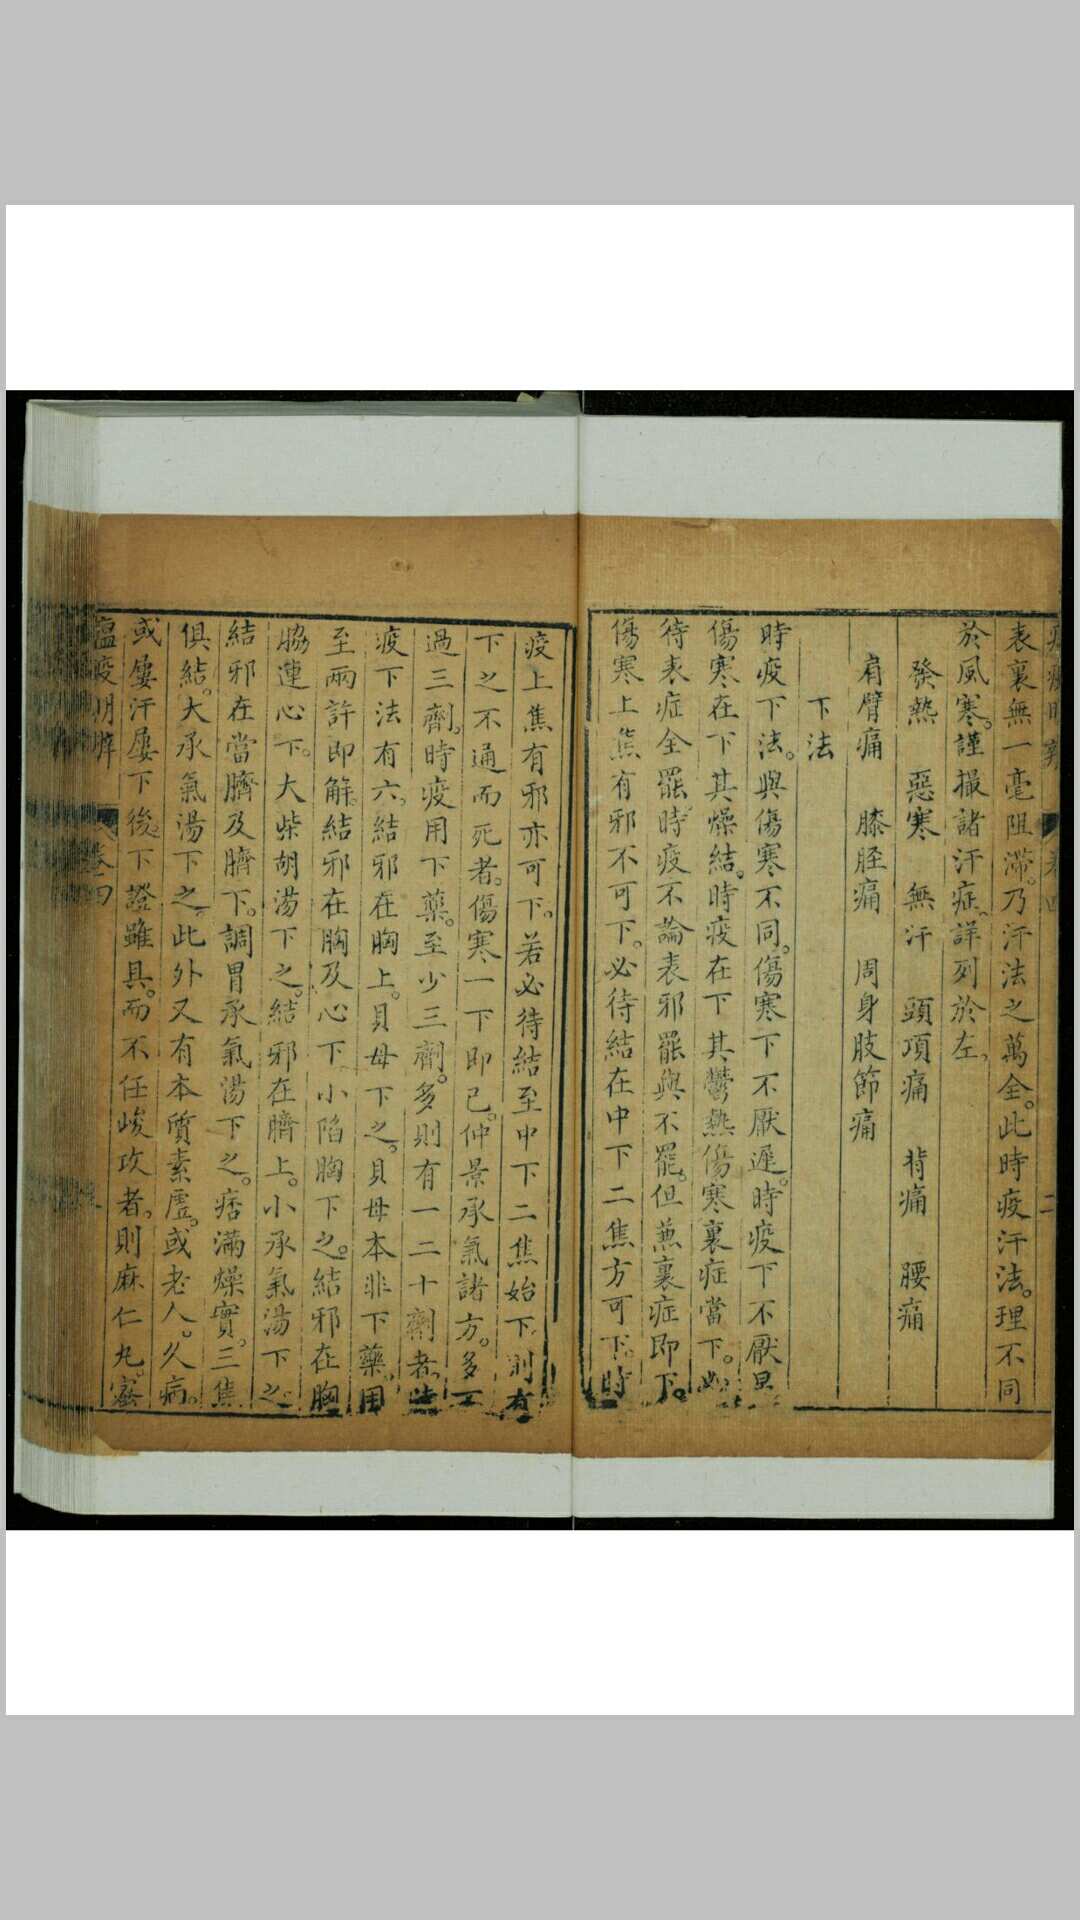 表裏無一毫阻滯。乃汗法之萬全。此時疫汗法。理不同
於風寒。謹撮諸汗症。詳列於左。
發熱 惡寒 無汗 頭項痛 背痛 腰痛
肩臂痛 膝脛痛 周身肢節痛
下法
時疫下法。與傷寒不同。傷寒下不厭遲。時疫下不厭早
傷寒在下其燥結。時疫在下其鬱熱傷寒裏症當下。必
待表症全罷時疫不論表邪罷與不罷。但兼裏症即下。
傷寒上焦有邪不可下。必待結在中下二焦方可下。時
疫上焦有邪亦可下。若必待結至中下二焦始下則有
下之不通而死者。傷寒一下即已。仲景承氣諸方。多不
過三劑。時疫用下藥。至少三劑。多則有一二十劑者。時
疫下法有六。結邪在胸上。貝母下之。貝母本非下藥。用
至兩許即解。結邪在胸及心下小陷胸下之。結邪在胸
脇連心下。大柴胡湯下之。結邪在臍上。小承氣湯下之。
結邪在當臍及臍下。調胃承氣湯下之。痞滿燥實。三焦
俱結。大承氣湯下之。此外又有本質素虛。或老人。久病。
或屢汗屢下後。下證雖具。而不任峻攻者。則麻仁丸。蜜
瘟疫明辨 卷四